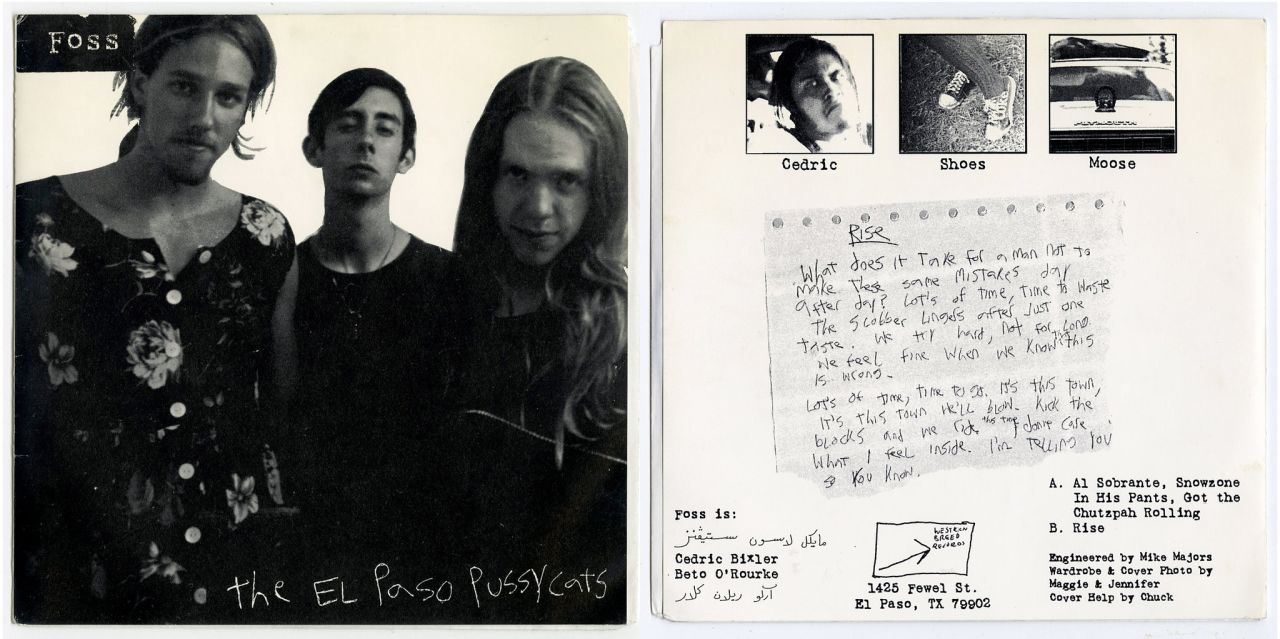 Foss
the EL Paso Pussycats
Cedric
Shoes
Moose
PLYMOUTH
Rise
What does it take for a man not to
make these same mistakes day
after day? Lot's of time, time to waste
The slobber lingers after just one
taste. We try hard, not for long.
We feel fine when we know this
is wrong.
Lot's of time, time to go. It's this town,
It's this town we'll blow. Kick the
blocks and we ride, this time I don't care
What I feel inside. I'm telling you
so you know.
Foss is:
مايكل لاسون ستيفنز
Cedric Bixler
Beto O'Rourke
آرلو ريلدن كلار
WESTERN
BREED
RECORDS
1425 Fewel St.
El Paso, TX 79902
A. Al Sobrante, Snowzone
In His Pants, Got the
Chutzpah Rolling
B. Rise
Engineered by Mike Majors
Wardrobe & Cover Photo by
Maggie & Jennifer
Cover Help by Chuck